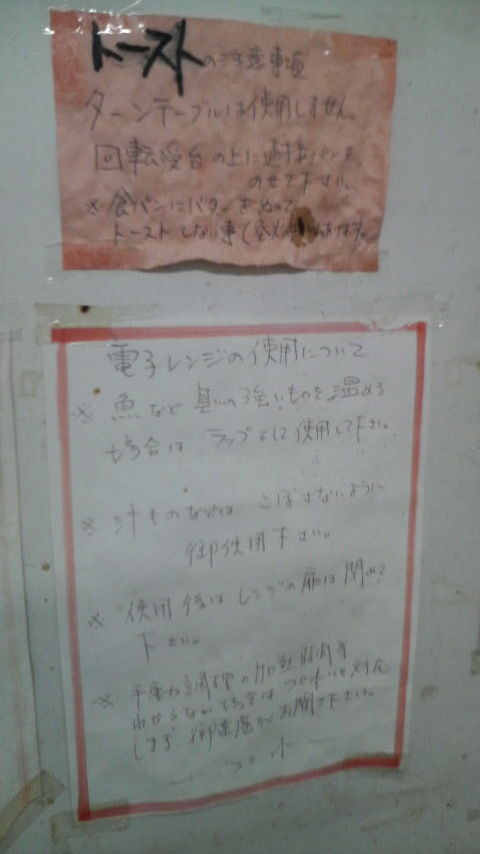 トーストの注意事項
ターンテーブルは使用しません。
回転受台の上に直接パンを
のせて下さい。
※食パンにバターをぬって
トーストしない事(発火
電子レンジの使用について
※魚など臭いの強いものを温める
場合はラップをして使用して下さい。
※汁ものなどは、こぼさないように
御使用下さい。
※使用後はレンジの扉は閉めて
下さい。
※手動調理の加熱時間等
わからない場合はフロントで対応
します御遠慮なくお聞き下さい。
フロント